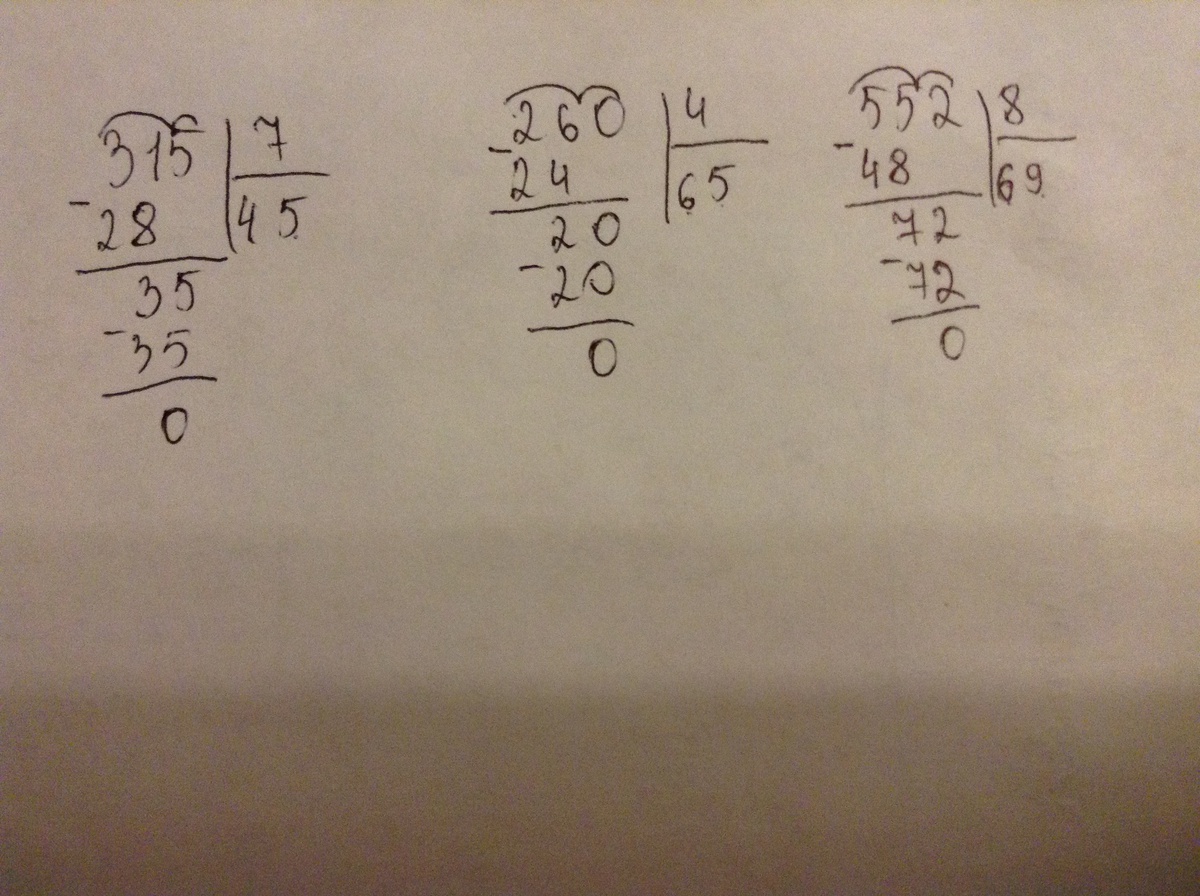 315 7
- 28 45
35
- 35
0
- 260 4
24 65
20
- 20
0
- 552 8
48 69
72
- 72
0